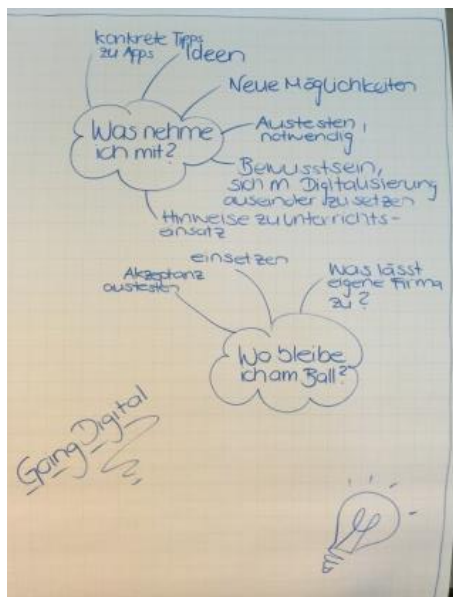 konkrete Tipps
zu Apps
Ideen
Neue Möglichkeiten
Was nehme
ich mit?
Austesten,
notwendig
Bewusstsein,
sich m. Digitalisierung
auseinander zu setzen
Hinweise zu Unterrichts-
einsatz
einsetzen
Akzeptanz
austesten
Was lässt
eigene Firma
zu?
Wo bleibe
ich am Ball?
Going Digital